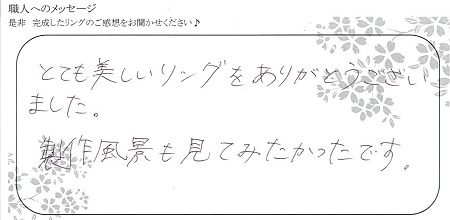 職人へのメッセージ
是非 完成したリングのご感想をお聞かせください♪
とても美しいリングをありがとうござい
ました。
製作風景も見てみたかったです。